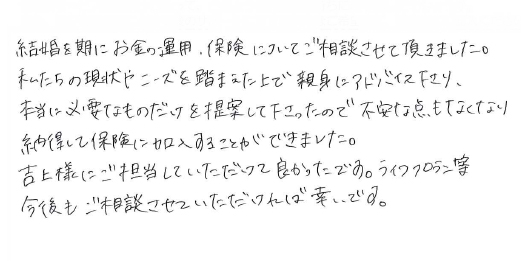 結婚を期にお金の運用、保険についてご相談させて頂きました。
私たちの現状やニーズを踏まえた上で親身にアドバイス下さり、
本当に必要なものだけを提案して下さったので不安な点もなくなり
納得して保険に加入することができました。
吉上様にご担当していただけて良かったです。ライフプラン等
今後もご相談させていただければ幸いです。